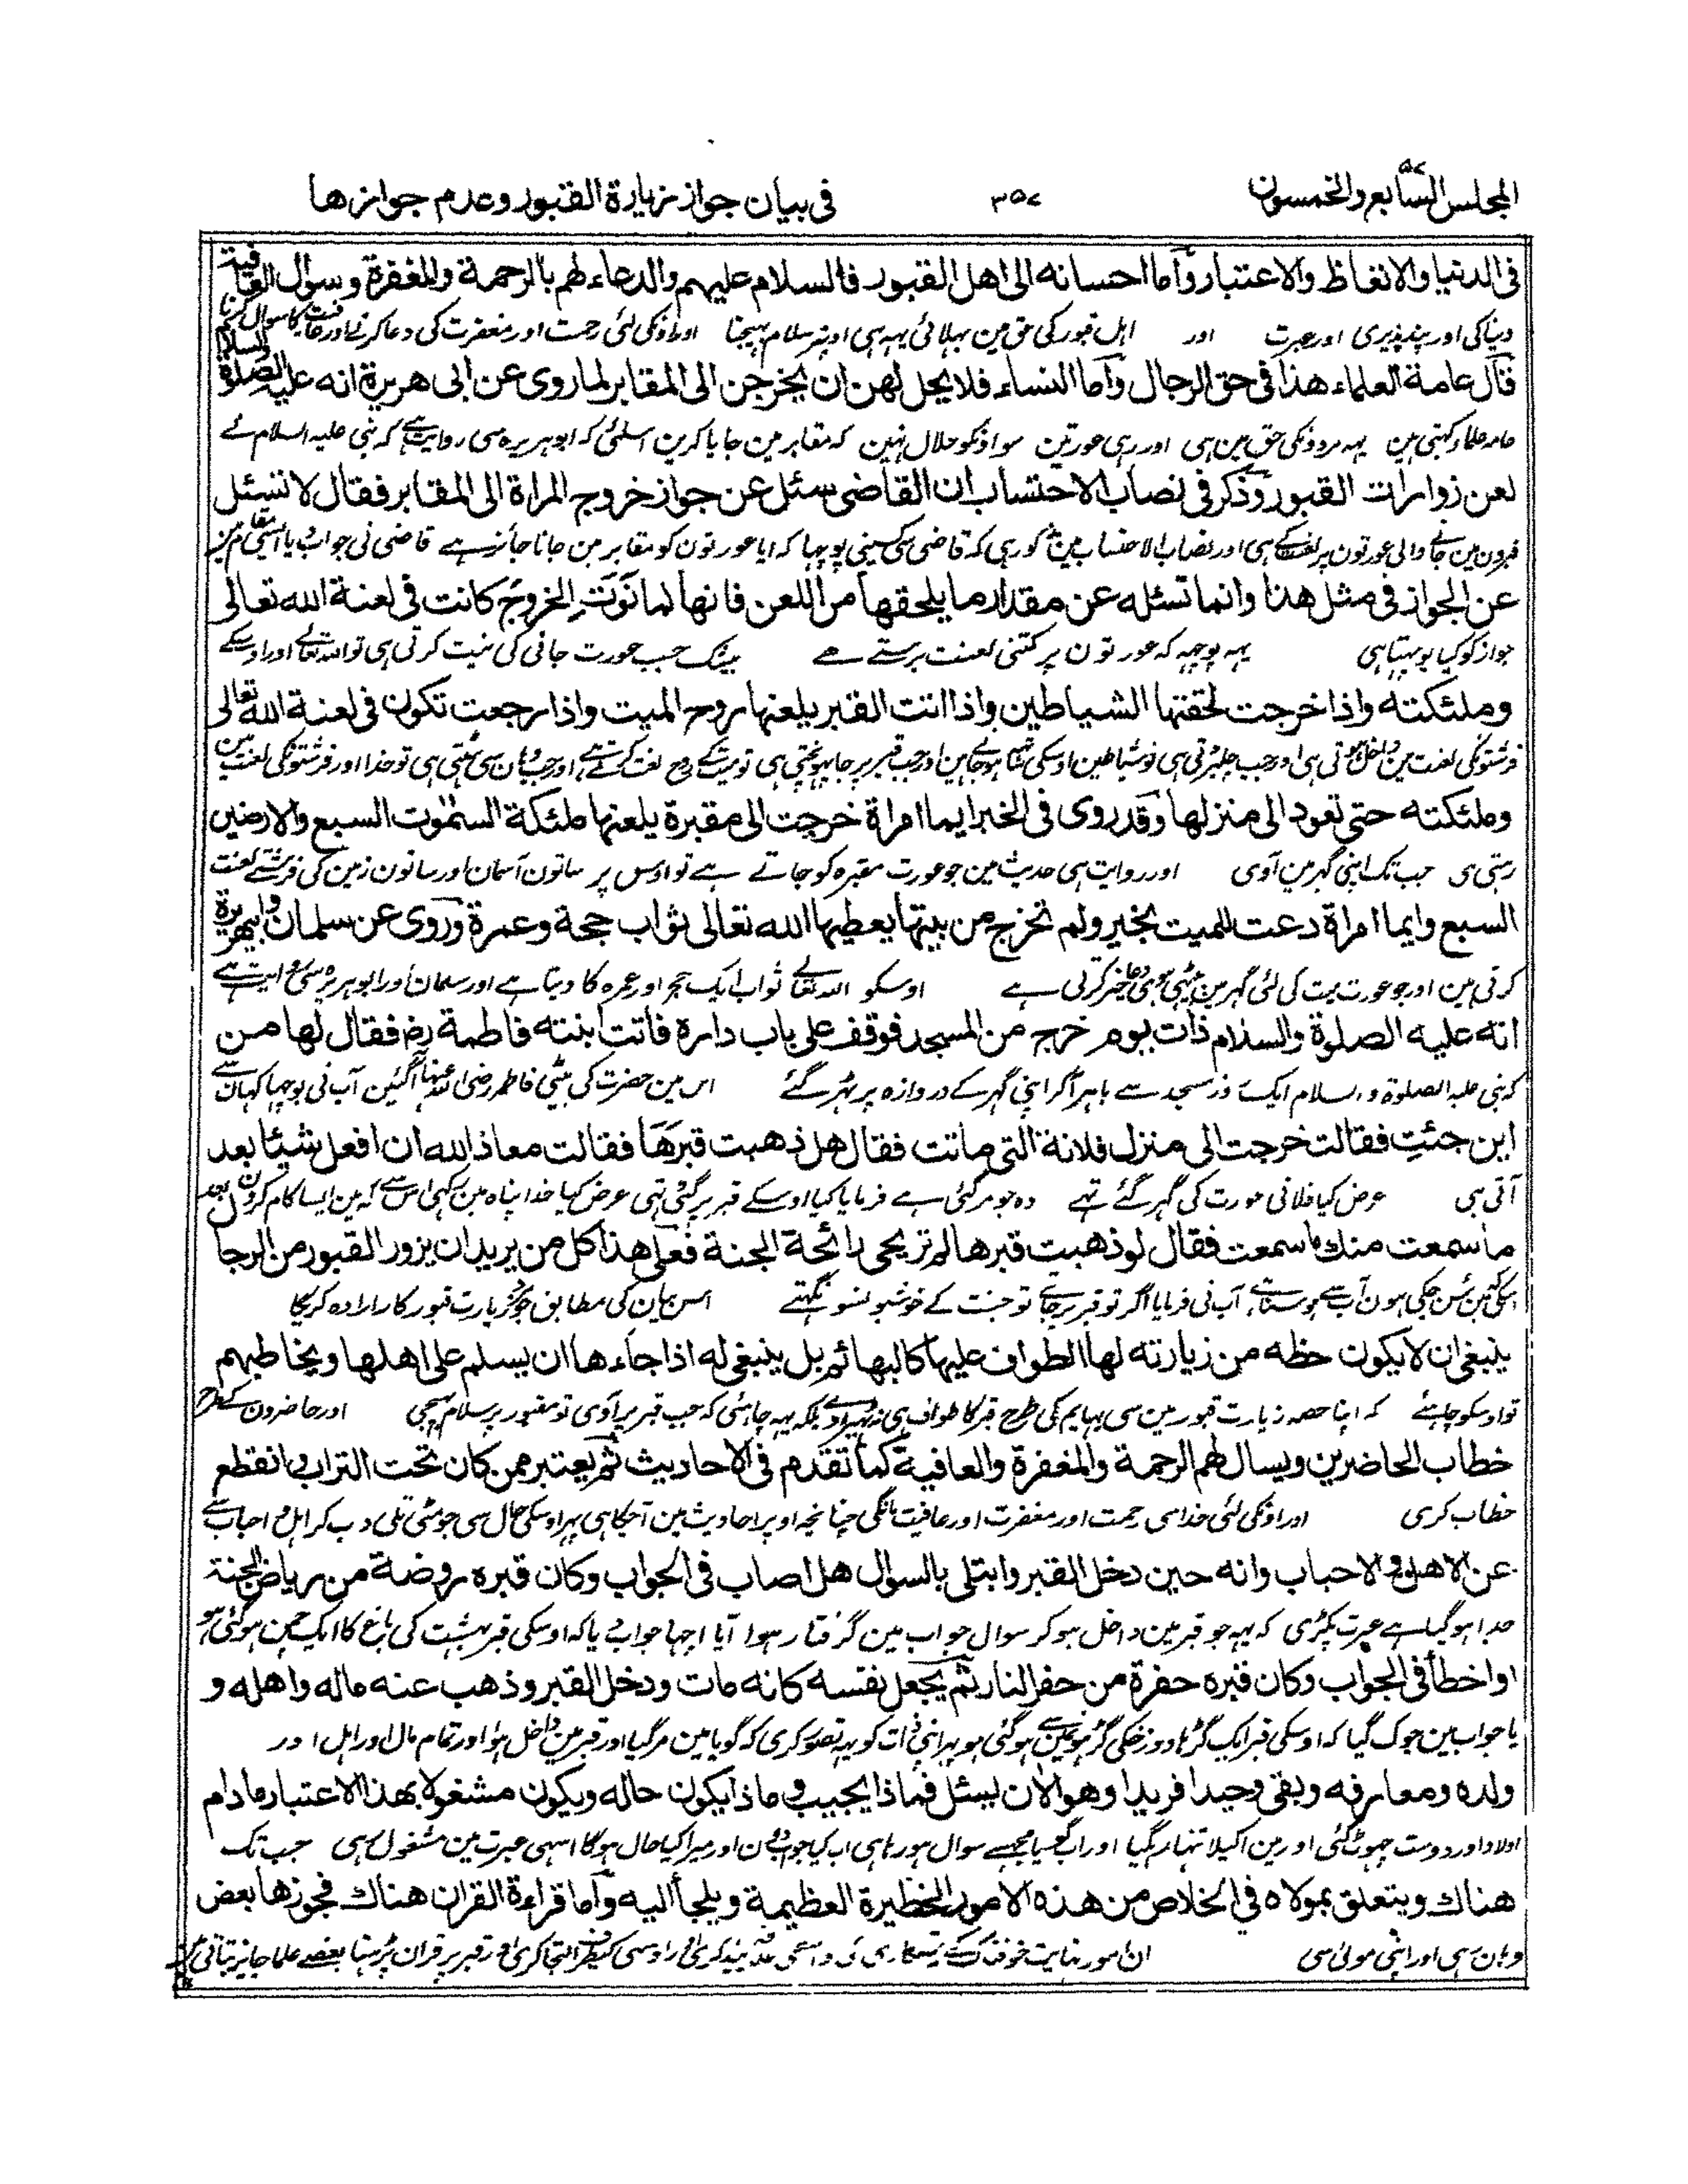 المجلس السابع والخمسون ٥٧
٣٥٧
فى بيان جواز زيارة القبور وعدم جوازها
فى الدنيا والاتعاظ والاعتبار وأما احسانه الى اهل القبور فالسلام عليهم والدعاء لهم بالرحمة والمغفرة وسوال العافية
دنیا کی اور پند پذیری اور عبرت اور اہل قبور کی حق مین بہلائی یہہ ہی اونپر سلام بہیجنا اور اونکی لئی رحمت اور مغفرت کی دعا کرنی اور عافیت کا سوال کرنا
قال عامة العلماء هذا فى حق الرجال وأما النساء فلا يحل لهن ان يخرجن الى المقابر لما روى عن ابى هريرة انه عليه الصلوة والسلام
عامہ علما کہتی ہین یہہ مردونکی حق مین ہی اور رہی عورتین سو اونکو حلال نہین کہ مقابر مین جایا کرین اسلئی کہ ابو ہریرہ سی روایت ہے کہ نبی علیہ السلام نے
لعن زوارات القبور وذكر فى نصاب الاحتساب ان القاضى سئل عن جواز خروج المراة الى المقابر فقال لا تسئل
قبرون مین جانے والی عورتون پر لعنت کے ہی اور نصاب الاحتساب مین مذکور ہی کہ قاضی سی کسینی پوچہا کہ ایا عورتون کو مقابر مین جانا جائز ہے قاضی نی جواب دیا
عن الجواز فى مثل هذا وانما تسئله عن مقدار ما يلحقها من اللعن فانها لما نوت الخروج كانت فى لعنة الله تعالى
جواز کو کیا پوچہتا ہی یہہ پوچہہ کہ عورتون پر کتنی لعنت برستے ہے بیشک جب عورت جانی کی نیت کرتی ہی تو اللہ تعالے اور اوسکے
وملئكته واذا خرجت لحقتها الشياطين واذا اتت القبر يلعنها روح الميت واذا رجعت تكون فى لعنة الله تعالى
فرشتونکی لعنت مین داخل ہوتی ہی اور جب چل پڑتی ہی تو شیاطین اوسکی ساتہہ ہو جاتے ہین اور جب قبر پر جا پہونچتی ہی تو میت کے روح لعنت کرتے ہے اور جب وہان سی پہرتی ہی تو خدا اور فرشتونکی لعنت مین
وملئكته حتى تعود الى منزلها وقد روى فى الخبر ايما امراة خرجت الى مقبرة يلعنها ملئكة السموت السبع والارضين
رہتی ہی جب تک اپنی گہر مین آوی اور روایت ہی حدیث مین جو عورت مقبرہ کو جاتے ہے تو اوس پر ساتون آسمان اور ساتون زمین کی فرشتے لعنت
السبع وايما امراة دعت للميت بخير ولم تخرج من بيتها يعطيها الله تعالى ثواب حجة وعمرة وروى عن سلمان وابى هريرة
کرتی ہین اور جو عورت میت کی لئی گہر مین بیٹہی ہوئی دعا خیر کرتی ہے اوسکو اللہ تعالے ثواب ایک حج اور عمرہ کا دیتا ہے اور سلمان اور ابو ہریرہ سی روایت ہے
انه عليه الصلوة والسلام ذات يوم خرج من المسجد فوقف على باب داره فاتت ابنته فاطمة رضـ فقال لها من
کہ نبی علیہ الصلوة و السلام ایک روز مسجد سے باہر آکر اپنی گہر کے دروازہ پر ٹہر گئے اس مین حضرت کی بیٹی فاطمہ رضی اللہ عنہا آگئین آپ نی پوچہا کہان سے
اين جئت فقالت خرجت الى منزل فلانة التى ماتت فقال هل ذهبت قبرها فقالت معاذ الله ان افعل شيئا بعد
آتی ہی عرض کیا فلانی عورت کی گہر گئے تہے وہ جو مر گئی ہے فرمایا کیا اوسکے قبر پر گئی تہی عرض کیا خدا پناہ مین رکہی اس سے کہ مین ایسا کام کرون بعد
ما سمعت منك ما سمعت فقال لو ذهبت قبرها لم تريحى رائحة الجنة فعلى هذا كل من يريد ان يزور القبور من الرجا
آپ نی فرمایا اگر تو قبر پر جاتے تو جنت کے خوشبو نسونگہتے اس بیان کی مطابق جو مرد زیارت قبور کا ارادہ کریگا
ينبغى ان لا يكون حظه من زيارته لها الطواف عليها كالبهائم بل ينبغى له اذا جاءها ان يسلم على اهلها ويخاطبهم
تو اوسکو چاہئے کہ اپنا حصہ زیارت قبور مین سی بہایم کی طرح قبر کا طواف ہی نہ ٹہراوے بلکہ یہہ چاہئی کہ جب قبر پر آوی تو مقبور پر سلام بہیجی اور حاضرون کے طرح
خطاب الحاضرين ويسال لهم الرحمة والمغفرة والعافية كما تقدم فى الاحاديث ثم يعتبر ممن كان تحت التراب وانقطع
خطاب کری اور اونکی لئی خدا سی رحمت اور مغفرت اور عافیت مانگی چنانچہ اوپر احادیث مین آچکا ہی پہر اوسکی حال سی جو مٹی تلی دب کر اہل و احباب سے
عن الاهل والاحباب وانه حين دخل القبر وابتلى بالسوال هل اصاب فى الجواب وكان قبره روضة من رياض الجنة
جدا ہو گیا ہے عبرت پکڑی کہ یہہ جو قبر مین داخل ہو کر سوال جواب مین گرفتار ہوا آیا اچہا جواب دیا کہ اوسکی قبر بہشت کی باغ کا ایک چمن ہو گئی ہو
او اخطأ فى الجواب وكان قبره حفرة من حفر النار ثم يجعل نفسه كانه مات ودخل القبر وذهب عنه ماله واهله و
یا جواب مین چوک گیا کہ اوسکی قبر ایک گڑہا دوزخکی گڑہون مین سے ہو گئی ہو پہر اپنی ذات کو یہہ تصور کری کہ گویا مین مر گیا اور قبر مین داخل ہوا اور تمام مال اور اہل اور
ولده ومعارفه وبقى وحيدا فريدا وهو الان يسئل فماذا يجيب وماذا يكون حاله ويكون مشغولا بهذا الاعتبار مادام
اولاد اور دوست چہوٹ گئی اور مین اکیلا تنہا رہگیا اور اب گویا مجہسے سوال ہو رہا ہی اب کیا جواب دون اور میرا کیا حال ہوگا اسہی عبرت مین مشغول رہی جب تک
هناك ويتعلق بمولاه فى الخلاص من هذه الامور الخطيرة العظيمة ويلجأ اليه وأما قراءة القران هناك فجوزها بعض
وہان رہی اور اپنی مولی سی ان امور نہایت خوفناک کے اور قبر پر قران پڑہنا بعضے علما جایز بتاتی